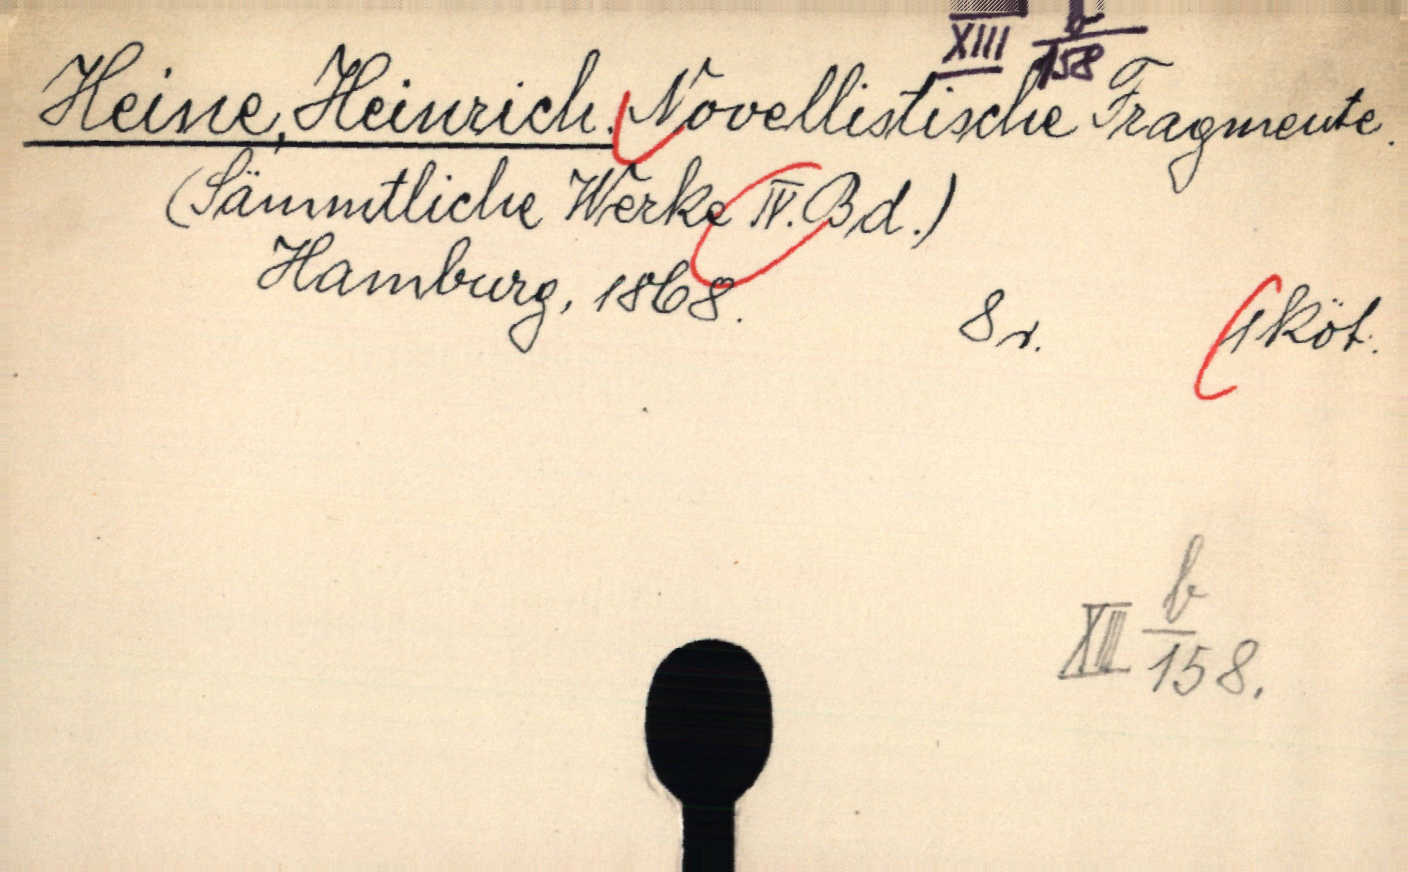 XIII b/158
Heine, Heinrich. Novellistische Fragmente.
(Sämmtliche Werke IV. Bd.)
Hamburg, 1868.
8r. 1 köt.
XIII b/158.